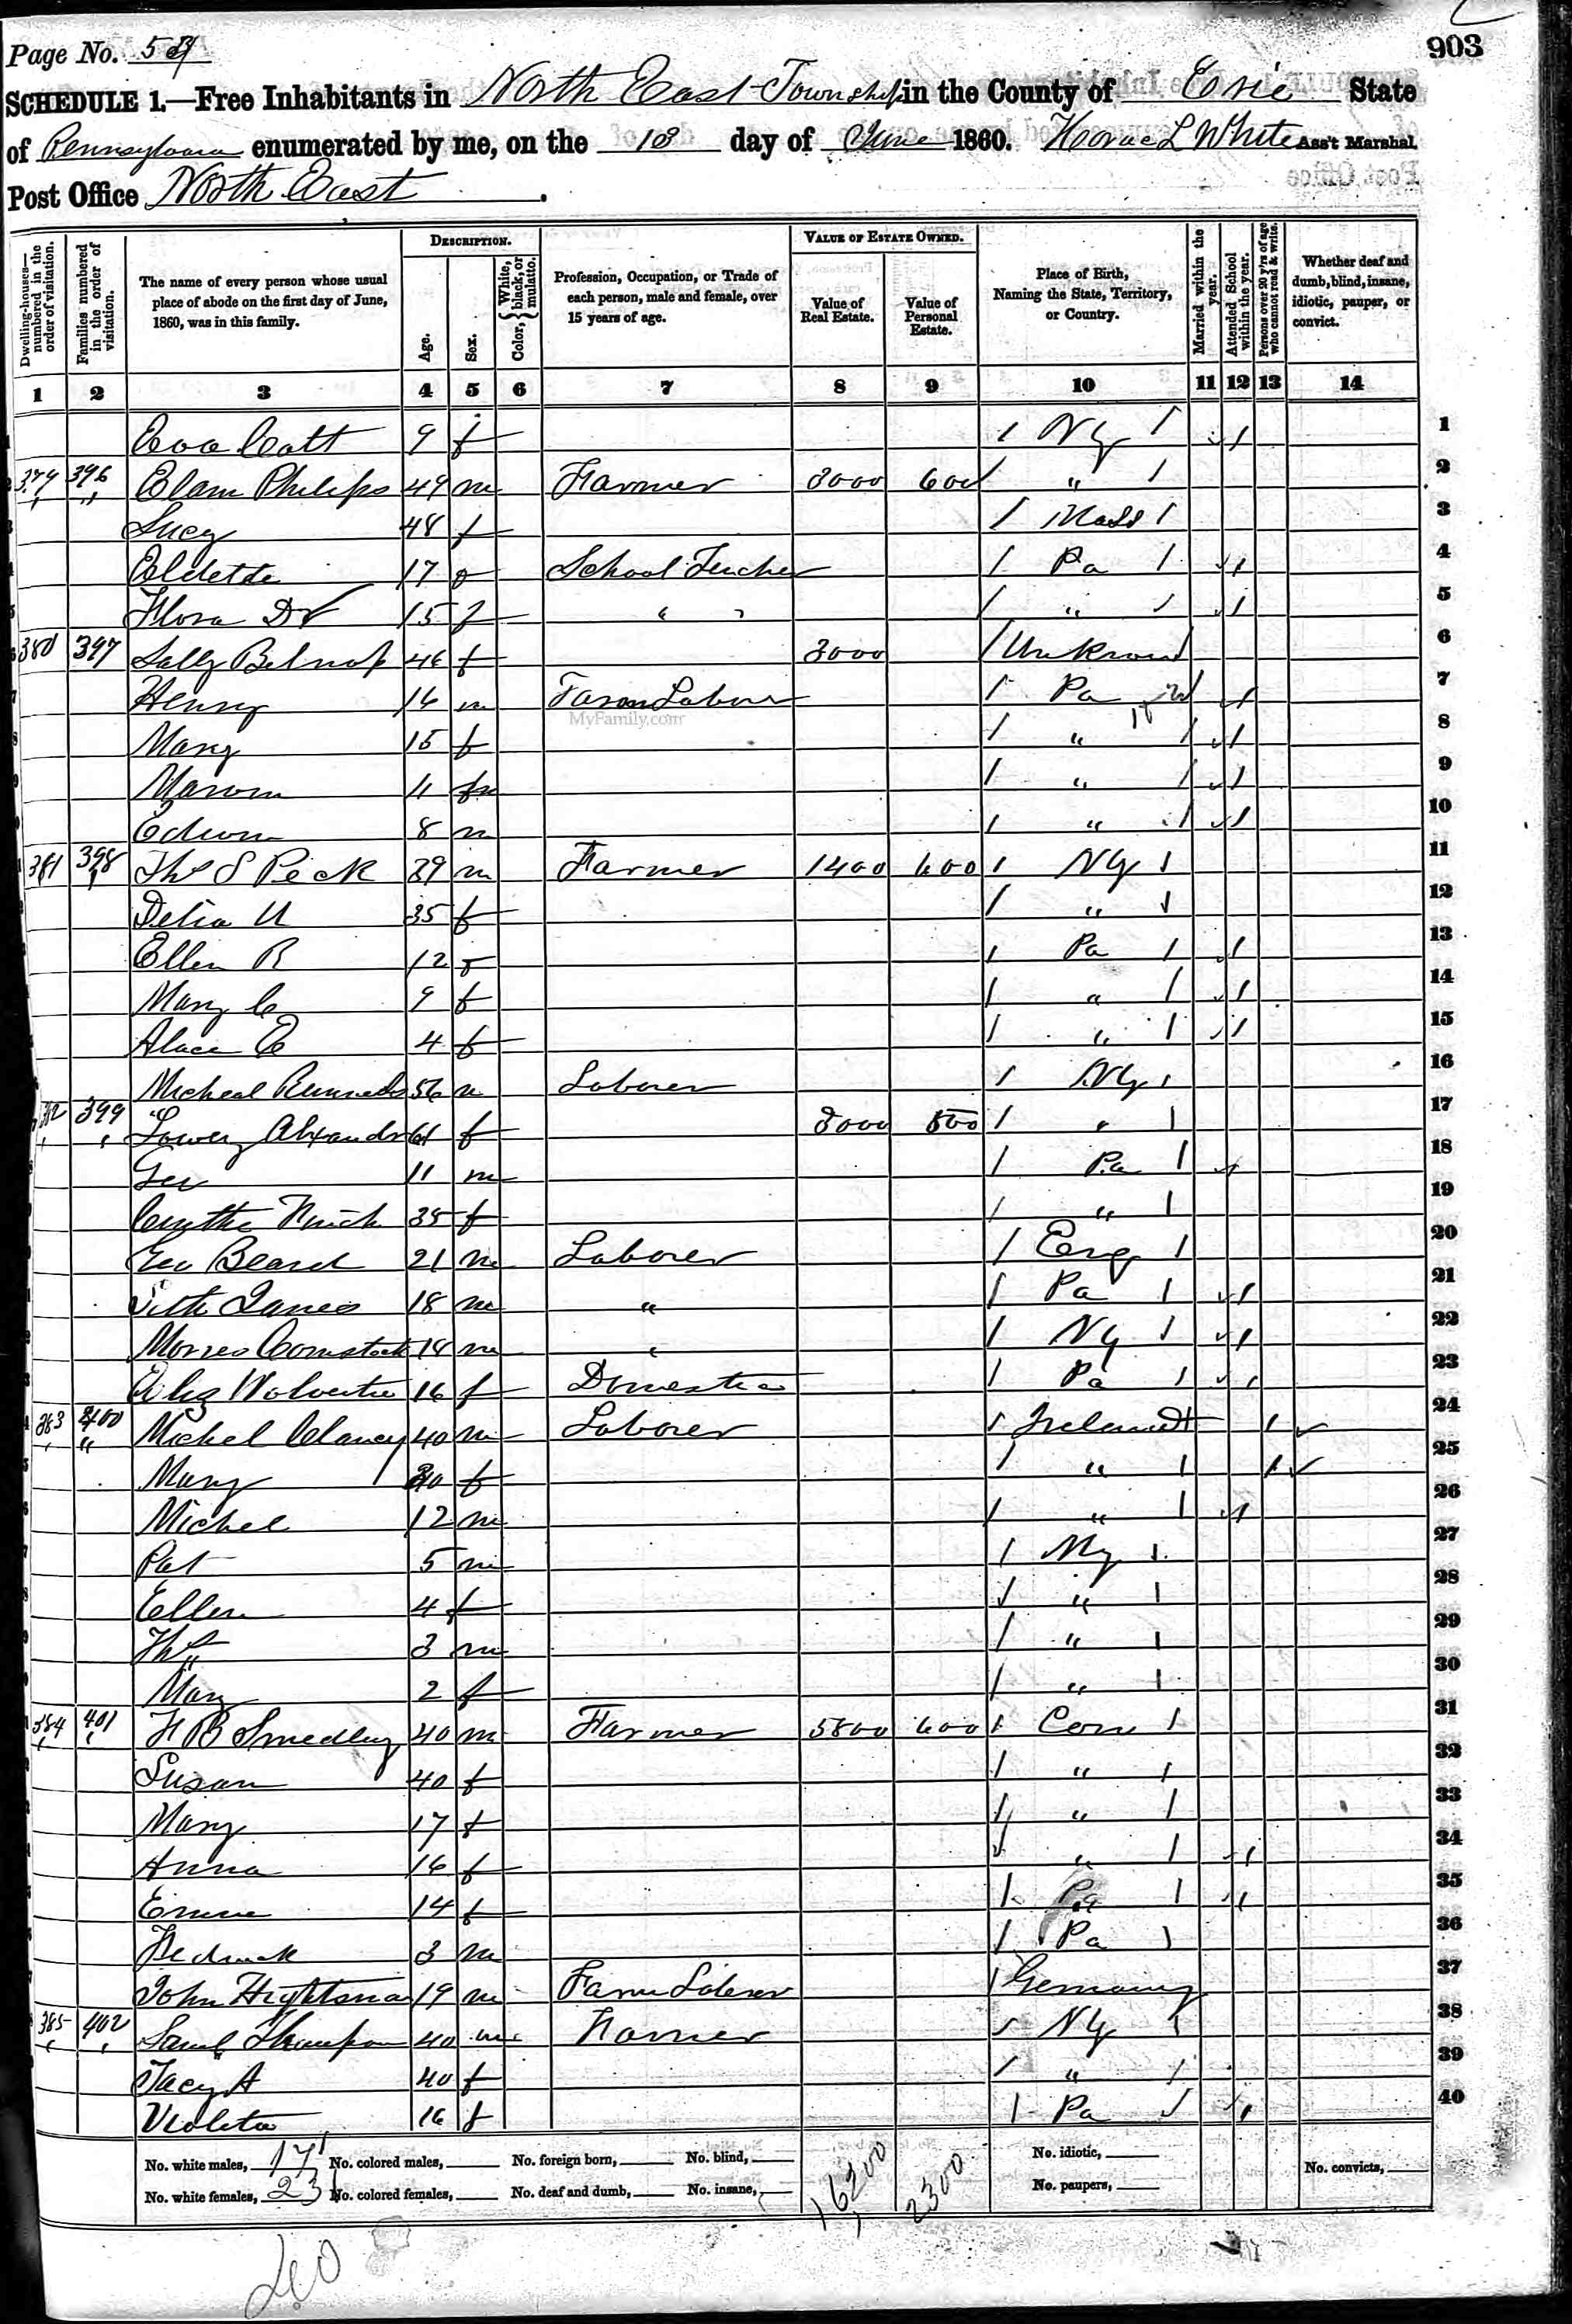 903
Page No. 53
SCHEDULE 1.—Free Inhabitants in North East Township in the County of Erie State
of Pennsylvania enumerated by me, on the 18 day of June 1860. Horace L White Ass't Marshal.
Post Office North East.
Dwelling-houses—numbered in the order of visitation.
Families numbered in the order of visitation.
The name of every person whose usual place of abode on the first day of June, 1860, was in this family.
DESCRIPTION.
Age.
Sex.
Color, { White, black, or mulatto.
Profession, Occupation, or Trade of each person, male and female, over 15 years of age.
VALUE OF ESTATE OWNED.
Value of Real Estate.
Value of Personal Estate.
Place of Birth, Naming the State, Territory, or Country.
Married within the year.
Attended School within the year.
Persons over 20 y'rs of age who cannot read & write.
Whether deaf and dumb, blind, insane, idiotic, pauper, or convict.
1 2 3 4 5 6 7 8 9 10 11 12 13 14
9 f / NY / / 1
379 396 Elam Philips 49 m Farmer 3000 600 / " / 2
Lucy 48 f / Mass / 3
17 School Teacher / Pa / / 4
Flora 15 f " / " / / 5
380 397 Sally Belnap 46 f 3000 / Unknown / 6
Henry 16 m Farm Labour / Pa / 7
Mary 15 f / " / / 8
11 / " / / 9
8 m / " / / 10
381 398 Thos S Peck 39 m Farmer 1400 600 / NY / 11
Delia 35 f / " / 12
Ellen R 12 f / Pa / / 13
Mary C 9 f / " / / 14
Alace E 4 f / " / / 15
Micheal 56 m Laborer / NY / 16
382 399 Lowery 61 f 3000 500 / " / 17
Geo 11 m / Pa / / 18
35 f / " / 19
Geo Beard 21 m Laborer / Eng / 20
Seth 18 m " / Pa / / 21
Comstock 14 m " / NY / / 22
16 f Domestic / Pa / / 23
383 400 Michel Clancy 40 m Laborer / Ireland / / 24
Mary f / " / / 25
Michel 12 m / " / / 26
Pat 5 m / NY / 27
Ellen 4 f / " / 28
Thos 3 m / " / 29
Mary 2 f / " / 30
384 401 H B Smedley 40 m Farmer 5800 600 / Con / 31
Susan 40 f / " / 32
Mary 17 f / " / 33
Anna 16 f / " / / 34
14 f / Pa / / 35
3 m / Pa / 36
John 19 m Farm Laborer / Germany 37
385 402 Saml Thompson 40 m Farmer / NY / 38
Tacy A 40 f / " / 39
Violeta 16 f / Pa / / 40
No. white males, 17 No. colored males, No. foreign born, No. blind, 16200 2300 No. idiotic,
No. white females, 23 No. colored females, No. deaf and dumb, No. insane, No. paupers, No. convicts,
40
MyFamily.com